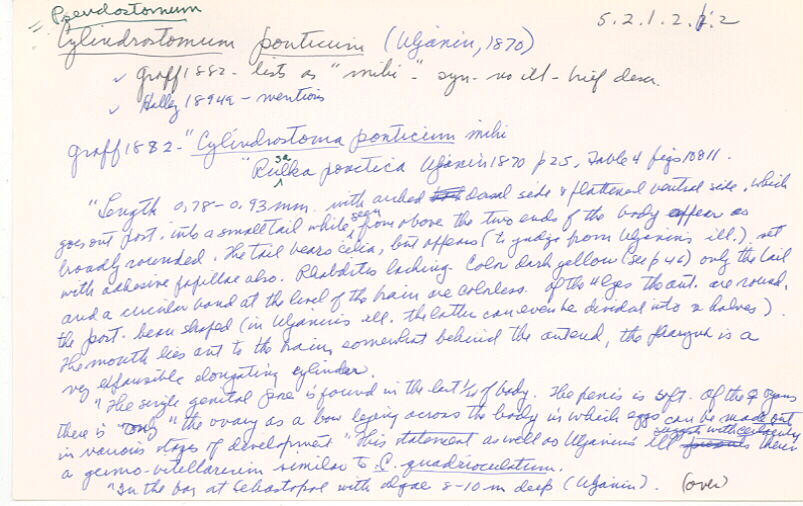 Pseudostomum
5.2.1.2.1.2
= Cylindrostomum ponticum (Uljanin, 1870)
✓ Graff 1882 - lists as "mihi" - syn - no ill - brief descr.
✓ Hallez 1894a - mentions
Graff 1882 - "Cylindrostoma ponticum mihi
"Rulsaka pontica Uljanin 1870 p 25, Table 4 figs 10 & 11.
"Length 0,78-0,93 mm. with arched dorsal side & flattened ventral side, which
goes out post. into a small tail while, seen from above the two ends of the body appear as
broadly rounded. The tail bears cilia, but appears (to judge from Uljanin's ill.), set
with adhesive papillae also. Rhabdites lacking. Color dark yellow (see p 46) only the tail
and a circular band at the level of the brain are colorless. Of the 4 eyes the ant. are round,
the post. bean shaped (in Uljanin's ill. the latter can even be divided into 2 halves).
The mouth lies ant to the brain, somewhat behind the ant end, the pharynx is a
very expansible elongating cylinder.
"The single genital pore is found in the last 1/4 of body. The penis is soft. Of the ♀ organs
there is only "the ovary as a bow lying across the body in which eggs can be made out
in various stages of development." This statement as well as Uljanin's ill with certainty therein
a germo-vitellarium similar to C. quadrioculatum.
"In the bay at Sebastopol with algae 8-10 m deep (Uljanin). (over)